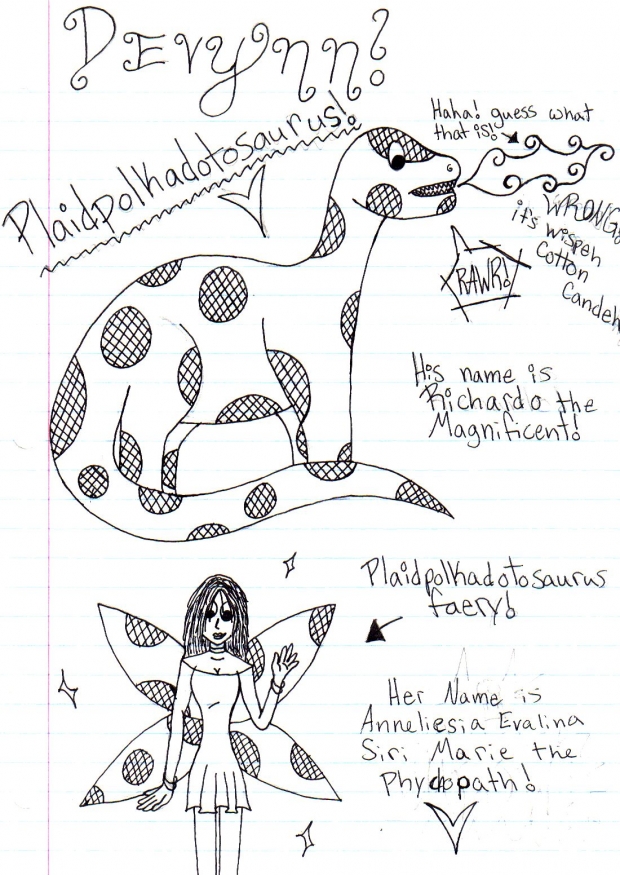 Devynn!
Plaidpolkadotosaurus!
Haha! guess what
that is!
WRONG!
it's wispeh
Cotton
Candeh
RAWR!
His name is
Richardo the
Magnificent!
Plaidpolkadotosaurus
faery!
Her Name is
Anneliesia Evalina
Siri Marie the
Phydopath!